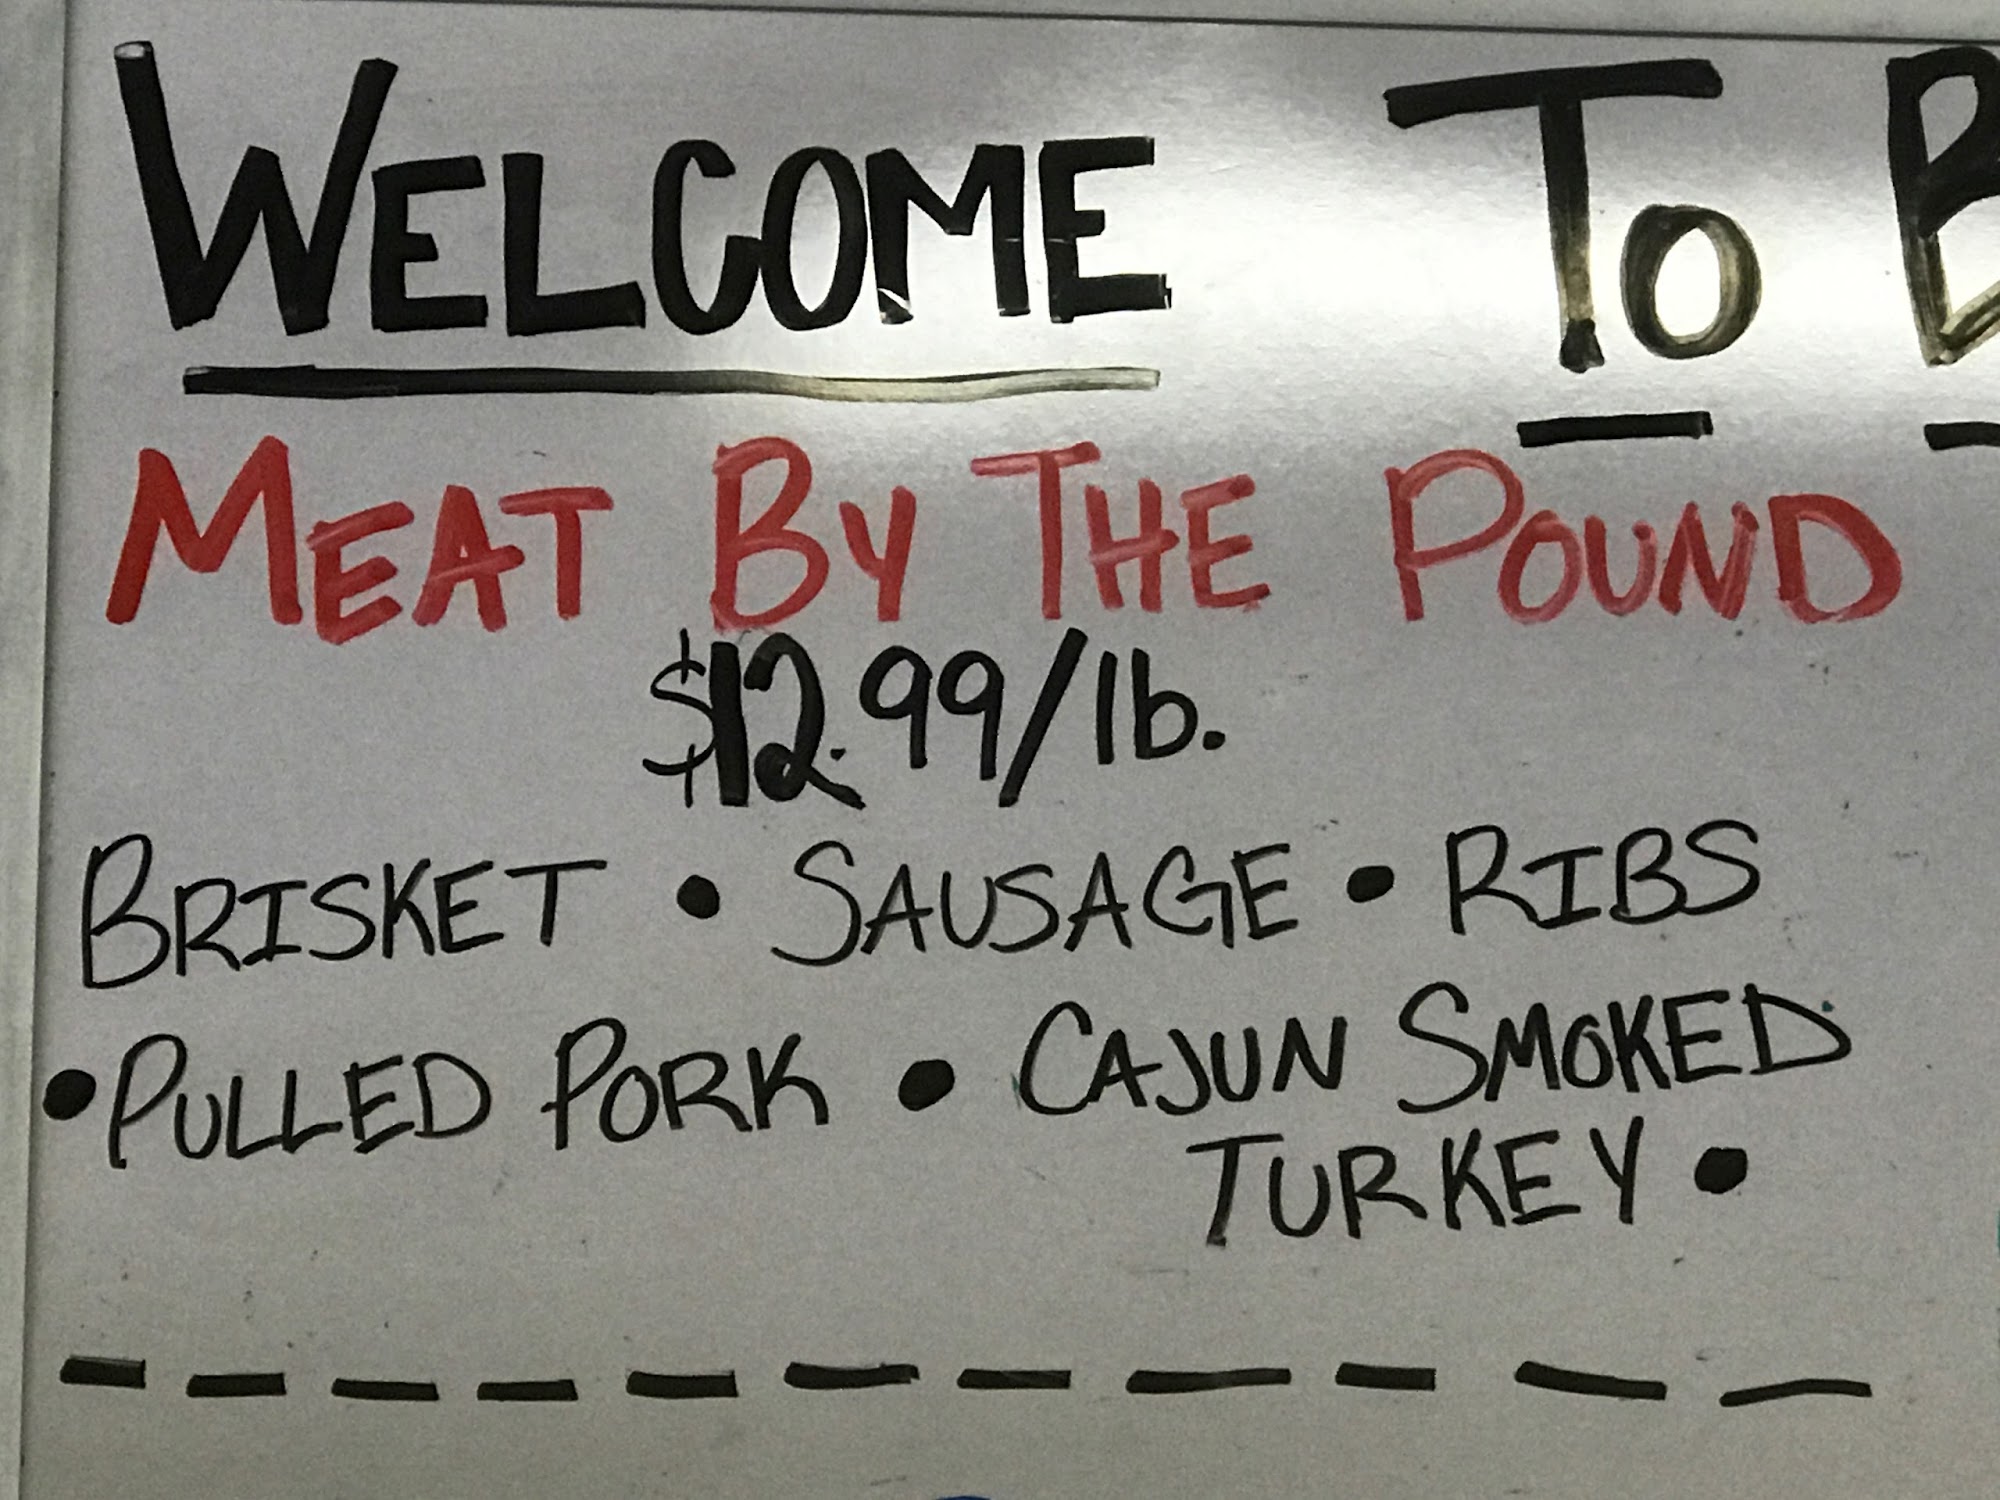 WELCOME TO B
MEAT BY THE POUND
$12.99/lb.
BRISKET • SAUSAGE • RIBS
• PULLED PORK • CAJUN SMOKED
TURKEY •